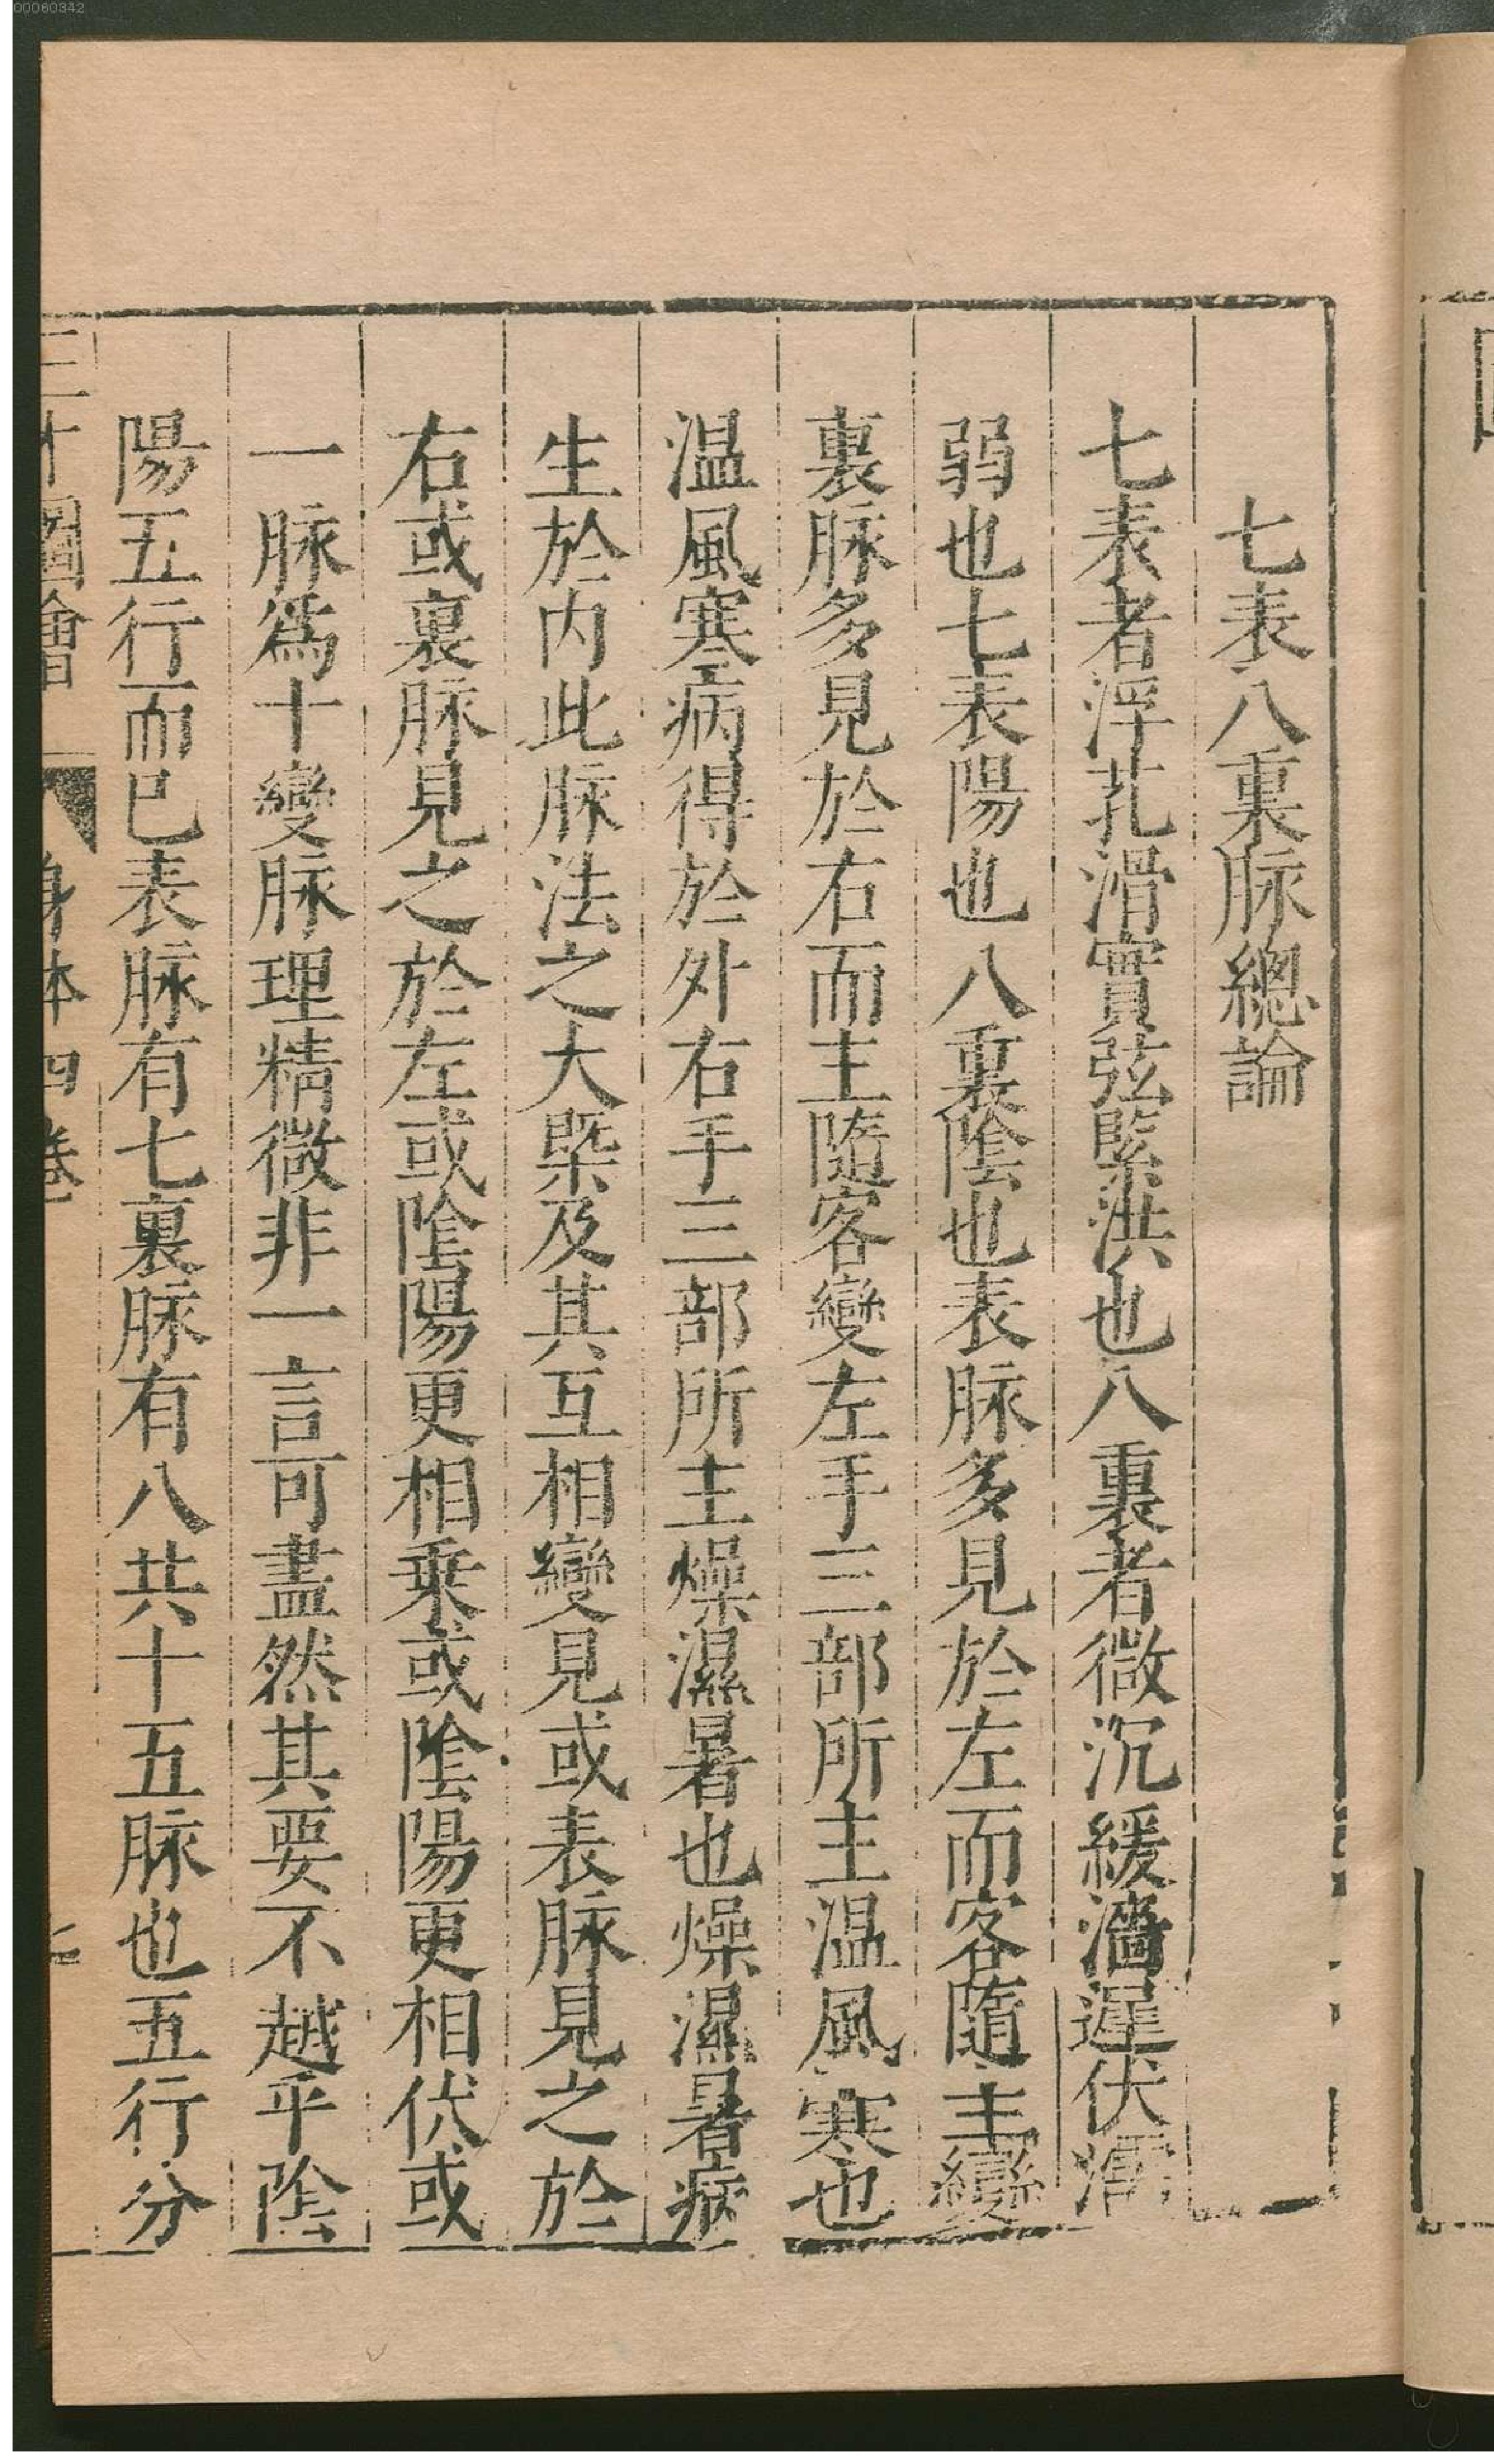 00060342
七表八裏脉總論
七表者浮芤滑實弦緊洪也八裏者微沉緩濇遲伏濡
弱也七表陽也八裏陰也表脉多見於左而客隨主變
裏脉多見於右而主隨客變左手三部所主温風寒也
温風寒病得於外右手三部所主燥濕暑也燥濕暑病
生於内此脉法之大槩及其互相變見或表脉見之於
右或裏脉見之於左或陰陽更相乘或陰陽更相伏或
一脉爲十變脉理精微非一言可盡然其要不越乎陰
陽五行而已表脉有七裏脉有八共十五脉也五行分
三才圖會 身体四卷